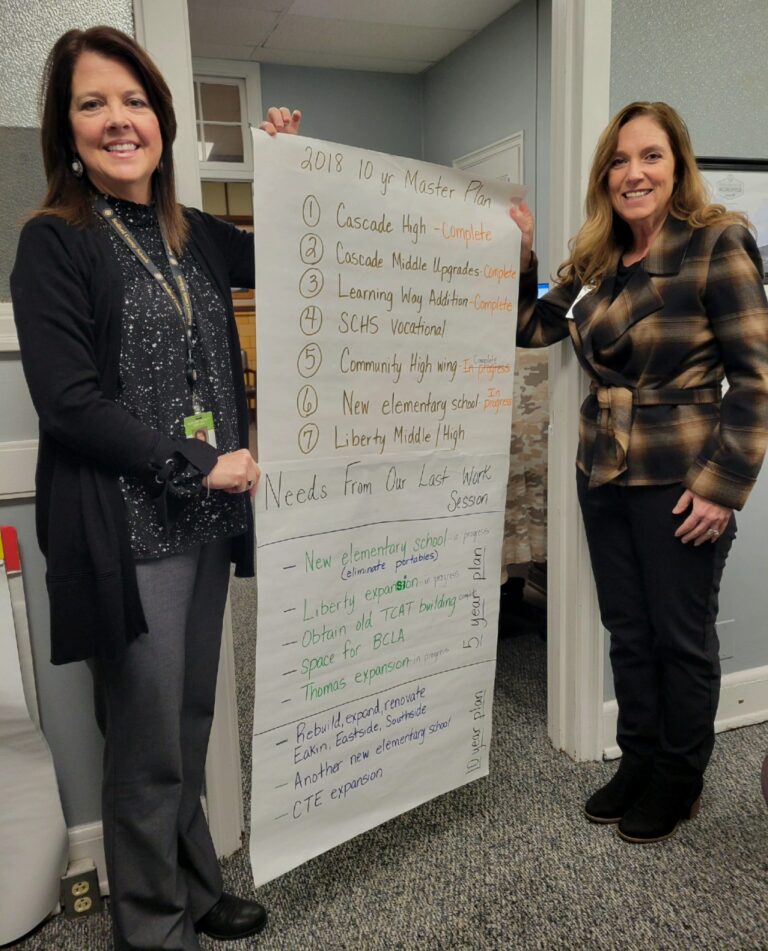 2018 10 yr Master Plan
① Cascade High - Complete
② Cascade Middle Upgrades - Complete
③ Learning Way Addition - Complete
④ SCHS Vocational
⑤ Community High wing - In progress Complete
⑥ New elementary school - In progress
⑦ Liberty Middle / High
Needs From Our Last Work
Session
- New elementary school - in progress
(eliminate portables)
- Liberty expansion - in progress
- Obtain old TCAT building
- Space for BCLA
- Thomas expansion - in progress
5 year plan
- Rebuild, expand, renovate
Eakin, Eastside, Southside
- Another new elementary school
- CTE expansion
10 year plan